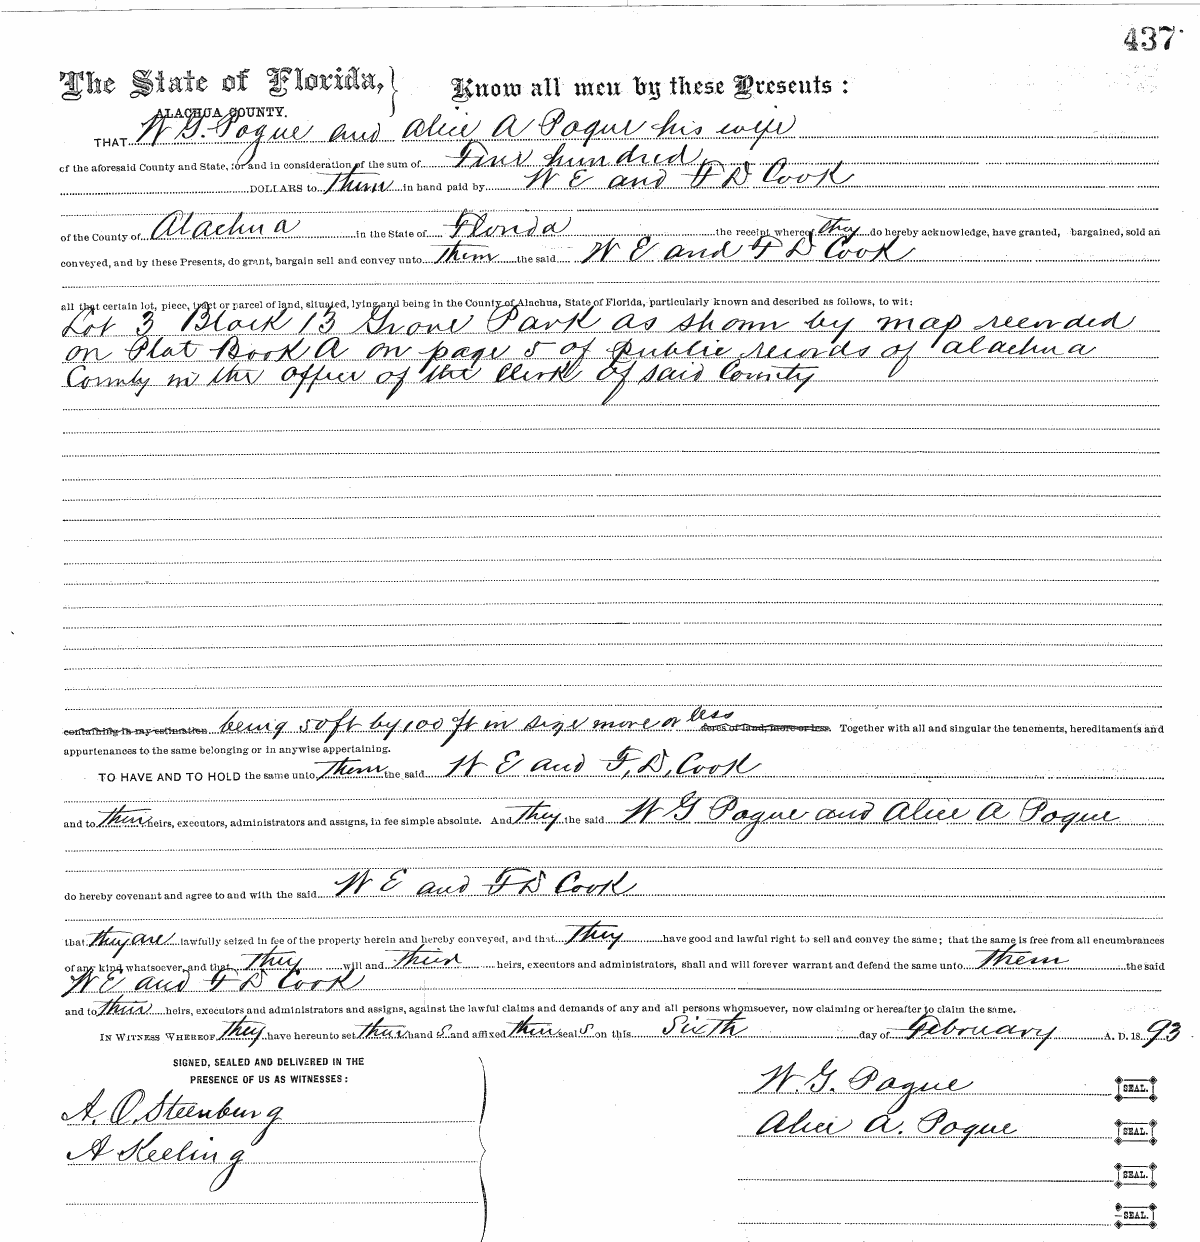 437
The State of Florida, Know all men by these Presents :
ALACHUA COUNTY.
THAT W. G. Pogue and Alice A Pogue his wife
of the aforesaid County and State, for and in consideration of the sum of Five hundred
DOLLARS to them in hand paid by W E and F D Cook
of the County of Alachua in the State of Florida the receipt whereof they do hereby acknowledge, have granted, bargained, sold an
conveyed, and by these Presents, do grant, bargain sell and convey unto them the said W E and F D Cook
all that certain lot, piece, tract or parcel of land, situated, lying and being in the County of Alachua, State of Florida, particularly known and described as follows, to wit:
Lot 3 Block 13 Grove Park as shown by map recorded
on Plat Book A on page 5 of public records of Alachua
County in the office of the Clerk of said County
containing in my estimation being 50 ft by 100 ft in size more or less acres of land, more or less. Together with all and singular the tenements, hereditaments and
appurtenances to the same belonging or in anywise appertaining.
TO HAVE AND TO HOLD the same unto them the said W E and F, D, Cook
and to their heirs, executors, administrators and assigns, in fee simple absolute. And they the said W G Pogue and Alice A Pogue
do hereby covenant and agree to and with the said W E and F D Cook
that they are lawfully seized in fee of the property herein and hereby conveyed, and that they have good and lawful right to sell and convey the same; that the same is free from all encumbrances
of any kind whatsoever, and that they will and their heirs, executors and administrators, shall and will forever warrant and defend the same unto them the said
W E and F D Cook
and to their heirs, executors and administrators and assigns, against the lawful claims and demands of any and all persons whomsoever, now claiming or hereafter to claim the same.
IN WITNESS WHEREOF they have hereunto set their hand s and affixed their seal s on this Sixth day of February A. D. 18 93
SIGNED, SEALED AND DELIVERED IN THE
PRESENCE OF US AS WITNESSES:
W. G. Pogue SEAL.
A. O. Steenburg
Alice A. Pogue SEAL.
A Keeling
SEAL.
SEAL.